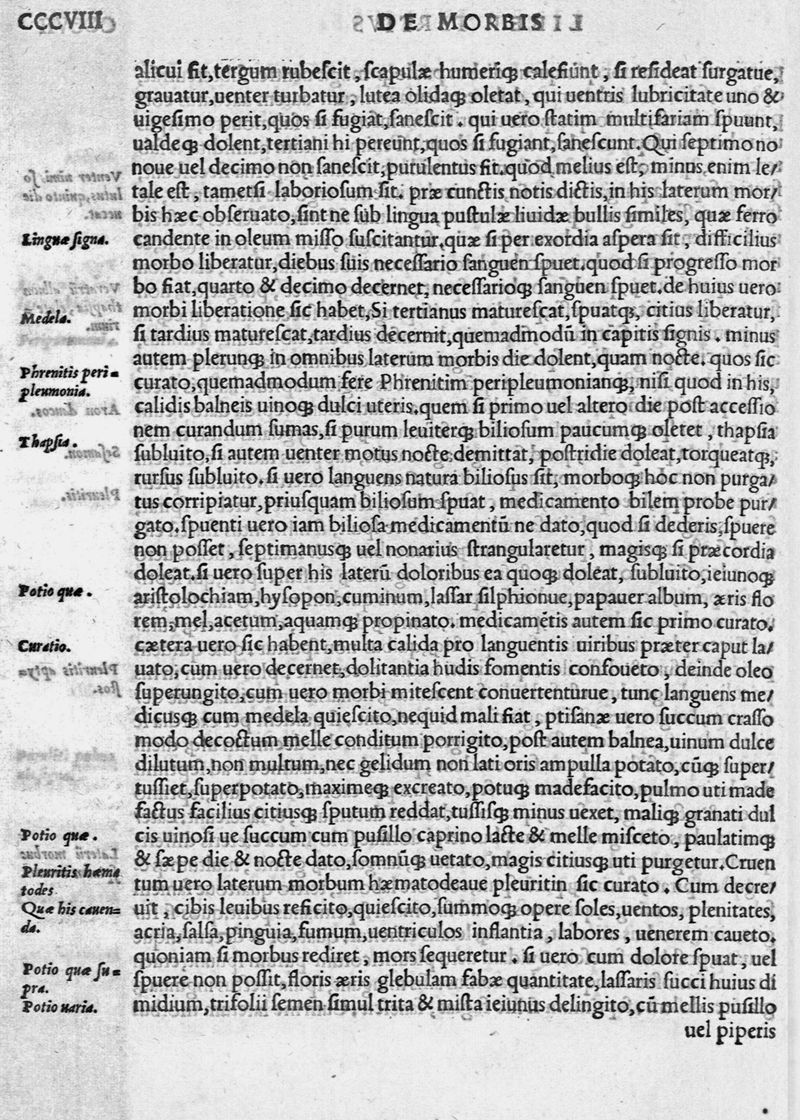 CCCVIII DE MORBIS
alicui fit,tergum rubeſcit, ſcapulæ humeriq́ꝫ calefiunt, ſi reſideat ſurgatue,
grauatur,uenter turbatur, lutea olidaq́ꝫ oletat, qui uentris lubricitate uno &
uigeſimo perit,quos ſi fugiat,ſaneſcit. qui uero ſtatim multifariam ſpuunt,
ualdeq́ꝫ dolent,tertiani hi pereunt,quos ſi fugiant,ſaneſcunt.Qui ſeptimo no
noue uel decimo non ſaneſcit,purulentus fit.quod melius eſt; minus enim le/
tale eſt, tametſi laborioſum ſit. præ cunctis notis dictis,in his laterum mor/
bis hæc obſeruato,ſint ne ſub lingua puſtulæ liuidæ bullis ſimiles, quæ ferro
Linguæ ſigna.
candente in oleum miſſo ſuſcitantur.quæ ſi per exordia aſpera ſit, difficilius
morbo liberatur,diebus ſuis neceſſario ſanguen ſpuet.quod ſi progreſſo mor
bo fiat,quarto & decimo decernet, neceſſarioq́ꝫ ſanguen ſpuet.de huius uero
Medela.
morbi liberatione ſic habet,Si tertianus matureſcat,ſpuatq́ꝫ, citius liberatur,
ſi tardius matureſcat,tardius decernit,quemadmodū in capitis ſignis. minus
autem plerunq́ꝫ in omnibus laterum morbis die dolent,quam nocte. quos ſic
Phrenitis peri=
pleumonia.
curato,quemadmodum fere Phrenitim peripleumonianq́ꝫ, niſi quod in his,
calidis balneis uinoq́ꝫ dulci uteris.quem ſi primo uel altero die poſt acceſſio
nem curandum ſumas,ſi purum leuiterq́ꝫ bilioſum paucumq́ꝫ oletet, thapſia
Thapſia.
ſubluito,ſi autem uenter motus nocte demittat, poſtridie doleat,torqueatq́ꝫ,
rurſus ſubluito. ſi uero languens natura bilioſus ſit, morboq́ꝫ hoc non purga/
tus corripiatur,priuſquam bilioſum ſpuat, medicamento bilem probe pur/
gato.ſpuenti uero iam bilioſa medicamentū ne dato,quod ſi dederis,ſpuere
non poſſet, ſeptimanusq́ꝫ uel nonarius ſtrangularetur, magisq́ꝫ ſi præcordia
doleat.ſi uero ſuper his laterū doloribus ea quoq́ꝫ doleat, ſubluito,ieiunoq́ꝫ
Potio quæ.
ariſtolochiam,hyſopon,cuminum,laſſar ſilphionue,papauer album, æris flo
rem,mel,acetum,aquamq́ꝫ propinato. medicamētis autem ſic primo curato.
Curatio.
cætera uero ſic habent,multa calida pro languentis uiribus præter caput la/
uato,cum uero decernet,dolitantia hudis fomentis confoueto, deinde oleo
ſuperungito,cum uero morbi miteſcent conuertenturue, tunc languens me/
dicusq́ꝫ cum medela quieſcito,nequid mali fiat, ptiſanæ uero ſuccum craſſo
modo decoctum melle conditum porrigito,poſt autem balnea,uinum dulce
dilutum,non multum,nec gelidum non lati oris ampulla potato,cūq́ꝫ ſuper/
tuſſiet,ſuperpotato,maximeq́ꝫ excreato,potuq́ꝫ madefacito,pulmo uti made
factus facilius citiusq́ꝫ ſputum reddat,tuſſisq́ꝫ minus uexet, maliq́ꝫ granati dul
Potio quæ.
cis uinoſi ue ſuccum cum puſillo caprino lacte & melle miſceto, paulatimq́ꝫ
& ſæpe die & nocte dato,ſomnūq́ꝫ uetato,magis citiusq́ꝫ uti purgetur.Cruen
Pleuritis hæma
todes
tum uero laterum morbum hæmatodeaue pleuritin ſic curato. Cum decre/
Quæ his cauen=
da.
uit, cibis leuibus reficito,quieſcito,ſummoq́ꝫ opere ſoles,uentos, plenitates,
acria,ſalſa,pinguia,fumum,uentriculos inflantia, labores, uenerem caueto.
quoniam ſi morbus rediret, mors ſequeretur. ſi uero cum dolore ſpuat, uel
Potio quæ ſu=
pra.
ſpuere non poſſit,floris æris glebulam fabæ quantitate,laſſaris ſucci huius di
Potio uaria.
midium,trifolii ſemen ſimul trita & miſta ieiunus delingito,cū mellis puſillo
uel piperis